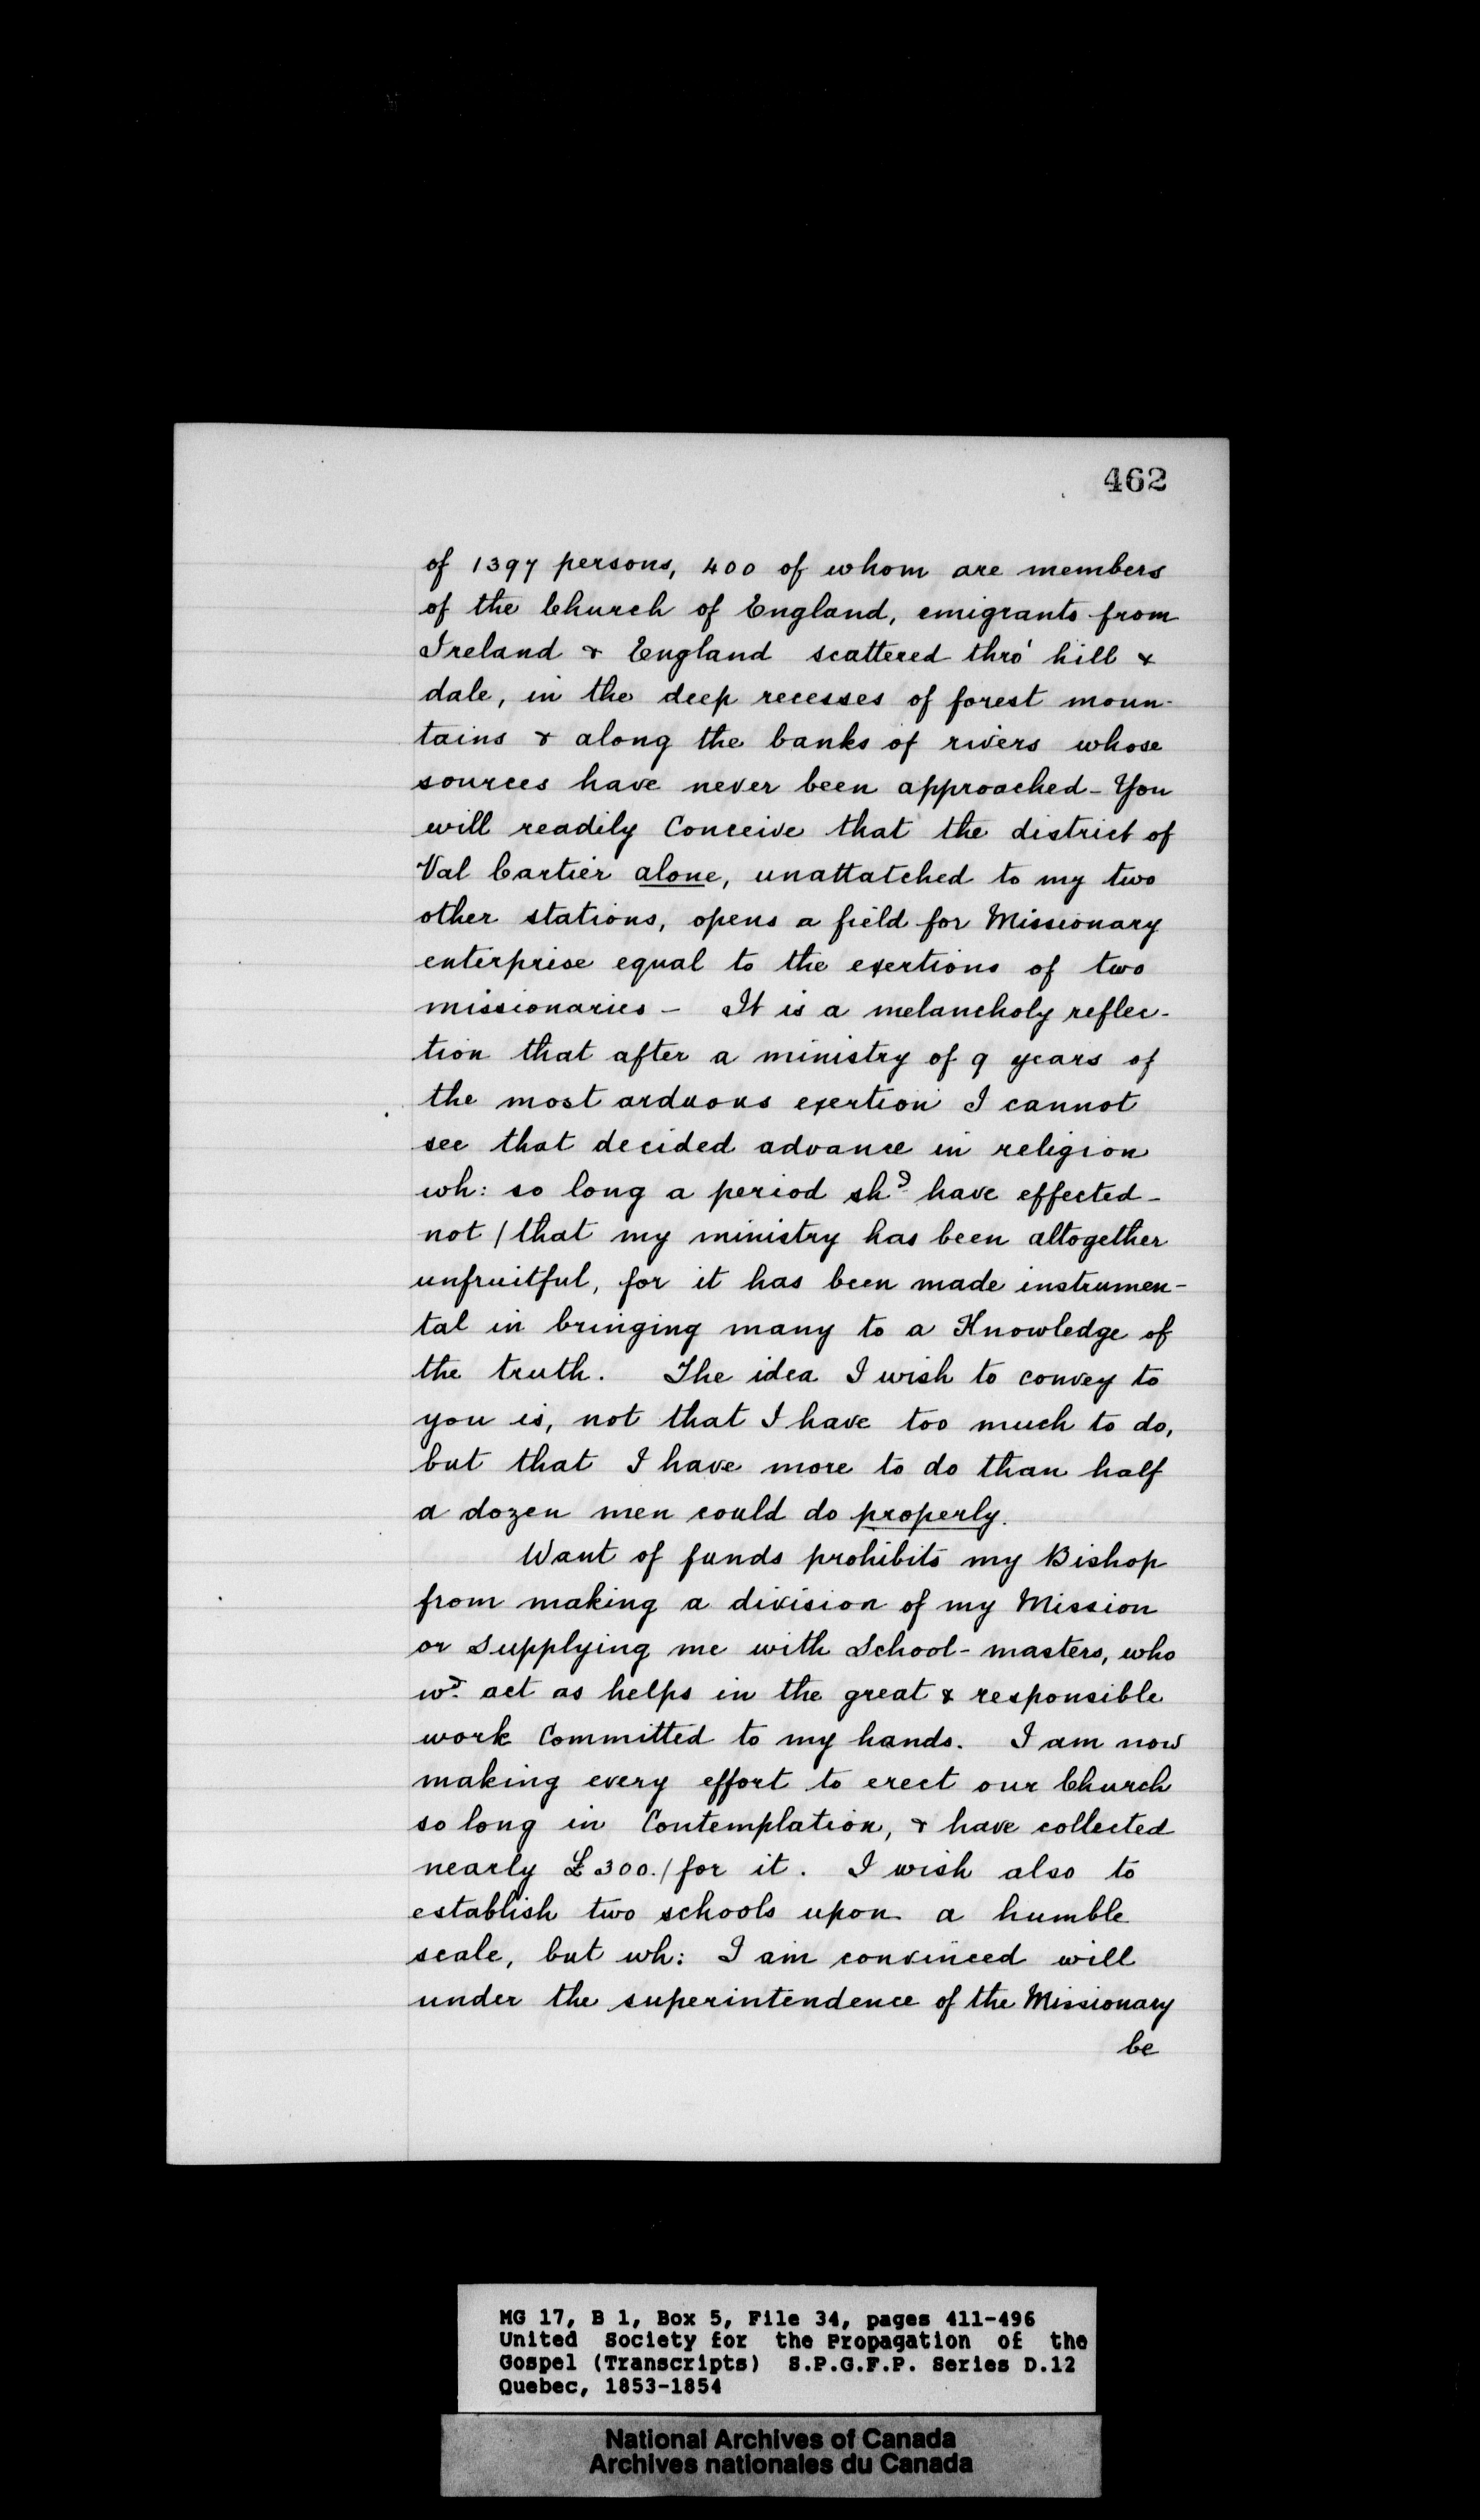 462
of 1397 persons, 400 of whom are members
of the Church of England, emigrants from
Ireland & England scattered thro' hill &
dale, in the deep recesses of forest moun-
tains & along the banks of rivers whose
sources have never been approached - You
will readily Conceive that the district of
Val Cartier alone, unattatched to my two
other stations, opens a field for Missionary
enterprise equal to the exertions of two
missionaries - It is a melancholy reflec-
tion that after a ministry of 9 years of
the most arduous exertion I cannot
see that decided advance in religion
wh: so long a period shd. have effected -
not / that my ministry has been altogether
unfruitful, for it has been made instrumen-
tal in bringing many to a Knowledge of
the truth. The idea I wish to convey to
you is, not that I have too much to do,
but that I have more to do than half
a dozen men could do properly.
Want of funds prohibits my Bishop
from making a division of my Mission
or supplying me with School-masters, who
wd. act as helps in the great & responsible
work Committed to my hands. I am now
making every effort to erect our Church
so long in Contemplation, & have collected
nearly £300./ for it. I wish also to
establish two schools upon a humble
scale, but wh: I am convinced will
under the superintendence of the Missionary
be
MG 17, B 1, Box 5, File 34, pages 411-496
United Society for the Propagation of the
Gospel (Transcripts) S.P.G.F.P. Series D.12
Quebec, 1853-1854
National Archives of Canada
Archives nationales du Canada